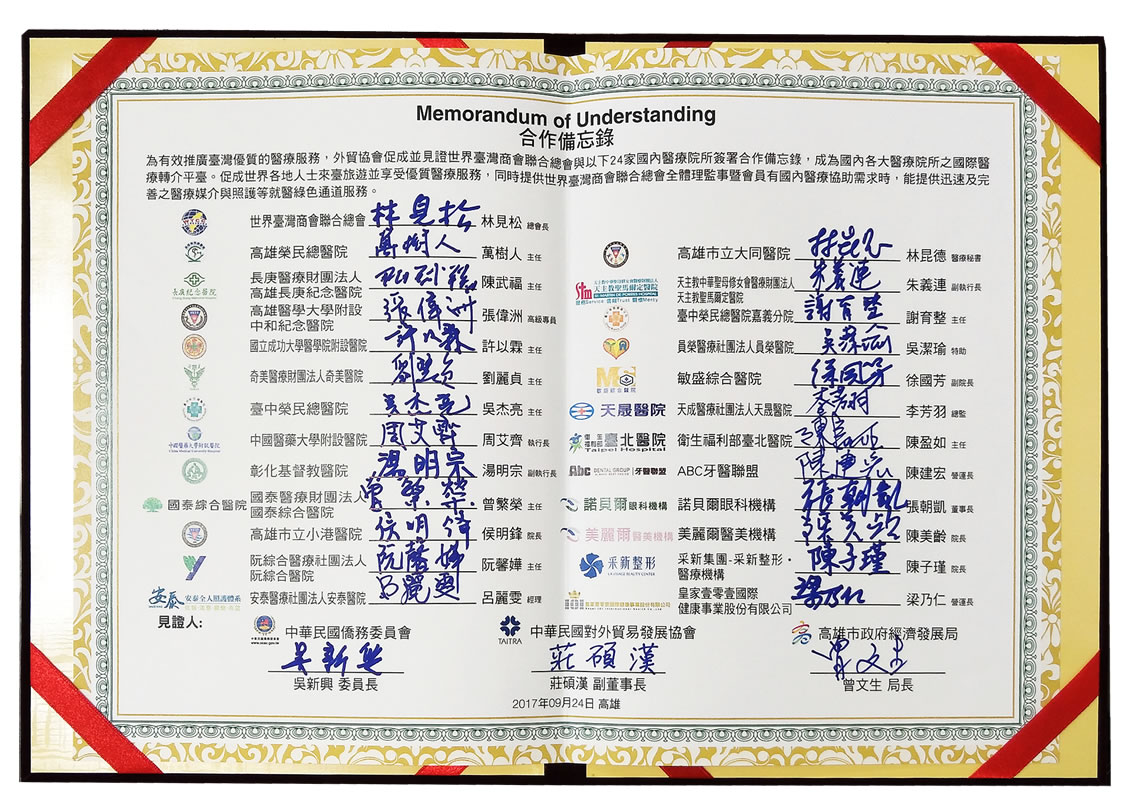 Memorandum of Understanding
合作備忘錄
為有效推廣臺灣優質的醫療服務，外貿協會促成並見證世界臺灣商會聯合總會與以下24家國內醫療院所簽署合作備忘錄，成為國內各大醫療院所之國際醫
療轉介平臺。促成世界各地人士來臺旅遊並享受優質醫療服務，同時提供世界臺灣商會聯合總會全體理監事暨會員有國內醫療協助需求時，能提供迅速及完
善之醫療媒介與照護等就醫綠色通道服務。
世界臺灣商會聯合總會 林見松 林見松 總會長
高雄榮民總醫院 萬樹人 萬樹人 主任
長庚紀念醫院 長庚醫療財團法人
高雄長庚紀念醫院 陳武福 主任
高雄醫學大學附設
中和紀念醫院 張偉洲 張偉洲 高級專員
國立成功大學醫學院附設醫院 許以霖 許以霖 主任
奇美醫療財團法人奇美醫院 劉麗貞 主任
臺中榮民總醫院 吳杰亮 吳杰亮 主任
中國醫藥大學附設醫院 中國醫藥大學附設醫院 周艾齊 周艾齊 執行長
彰化基督教醫院 湯明宗 湯明宗 副執行長
國泰綜合醫院 國泰醫療財團法人
國泰綜合醫院 曾繁榮 曾繁榮 主任
高雄市立小港醫院 侯明鋒 院長
阮綜合醫療社團法人
阮綜合醫院 阮馨嬅 阮馨嬅 主任
安泰 安泰全人照護體系 安泰醫療社團法人安泰醫院 呂麗雯 呂麗雯 經理
高雄市立大同醫院 林昆德 醫療秘書
Stm 天主教中華聖母修女會醫療財團法人
天主教聖馬爾定醫院
ST. MARTIN DE PORRES HOSPITAL
服務Service 信賴Trust 醫憫Mercy
天主教中華聖母修女會醫療財團法人
天主教聖馬爾定醫院 朱義連 朱義連 副執行長
臺中榮民總醫院嘉義分院 謝育整 謝育整 主任
員榮醫療社團法人員榮醫院 吳潔瑜 特助
敏盛綜合醫院 敏盛綜合醫院 徐國芳 徐國芳 副院長
天晟醫院 天成醫療社團法人天晟醫院 李芳羽 李芳羽 總監
衛生福利部 臺北醫院 Taipei Hospital 衛生福利部臺北醫院 陳盈如 主任
Abc DENTAL GROUP 牙醫聯盟 ABC牙醫聯盟 陳建宏 陳建宏 營運長
諾貝爾眼科機構 諾貝爾眼科機構 張朝凱 張朝凱 董事長
美麗爾醫美機構 美麗爾醫美機構 陳美齡 院長
采新整形 采新集團-采新整形・
醫療機構 陳子瑾 陳子瑾 院長
皇家壹零壹國際
健康事業股份有限公司 梁乃仁 梁乃仁 營運長
見證人:
中華民國僑務委員會
吳新興
吳新興 委員長
TAITRA 中華民國對外貿易發展協會
莊碩漢
莊碩漢 副董事長
高雄市政府經濟發展局
曾文生
曾文生 局長
2017年09月24日 高雄